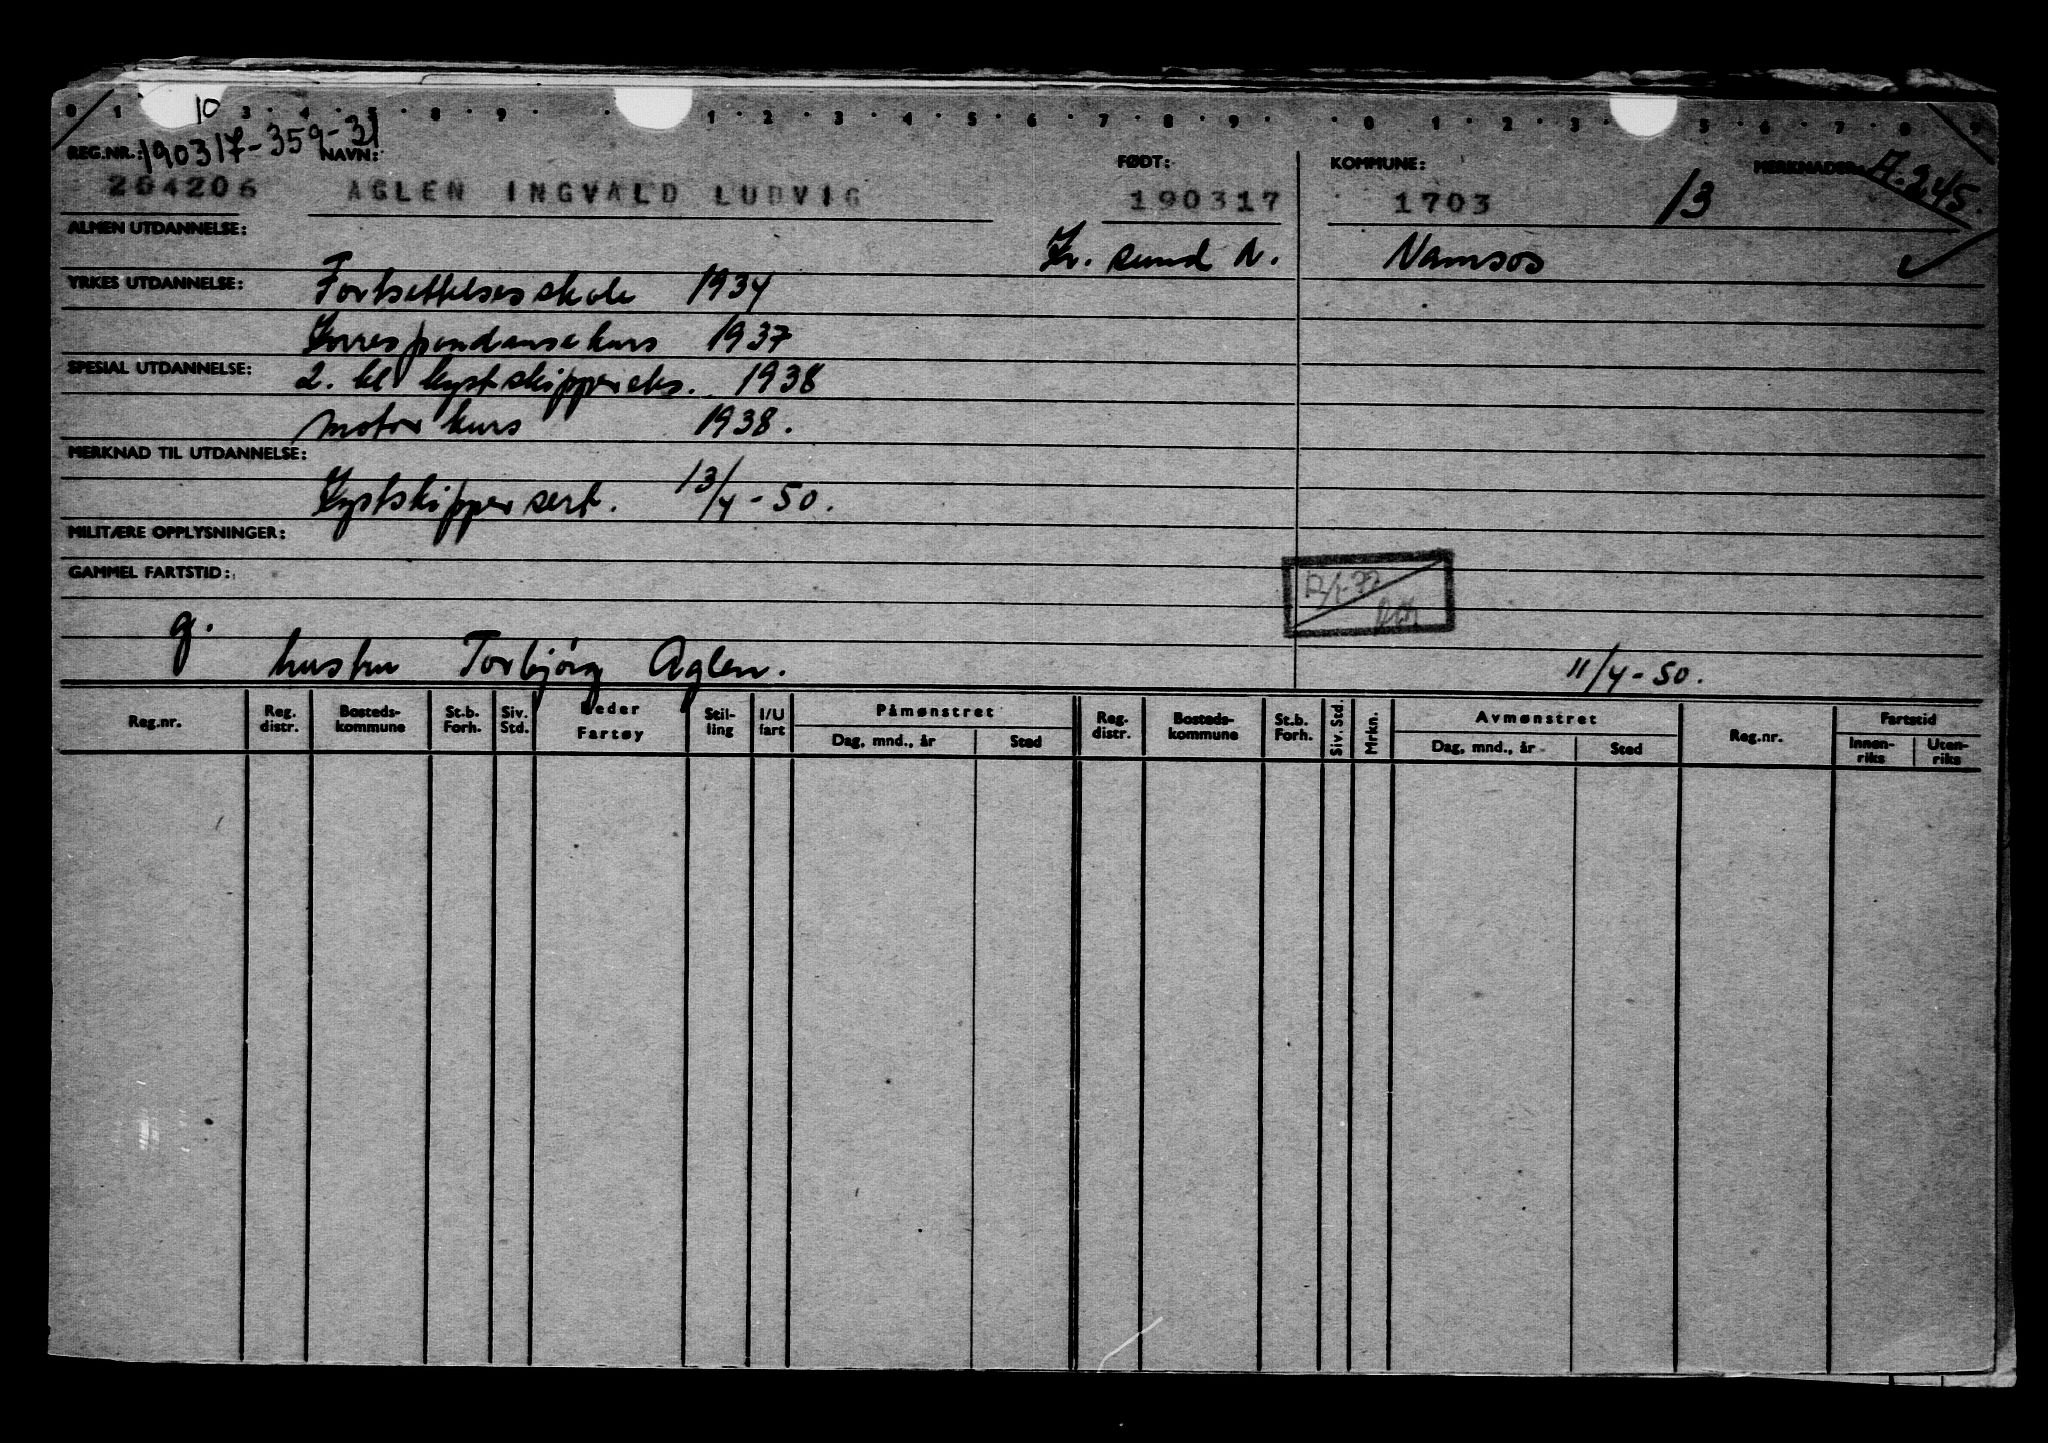 0 1 10 3 · 4 · 5 · 8 · 9 · · 1 · 2 · 3 · 4 · 5 · 6 · 7 · 8 · 9 · · 0 · 1 · 2 · 3 · 5 · 6 · 7 · 8 · 9
REG.NR.: 190317-359-31 NAVN: FØDT: KOMMUNE: MERKNADER: A.245.
264206 AGLEN INGVALD LUDVIG 190317 1703 13
ALMEN UTDANNELSE: Kr. sund N. Namsos
YRKES UTDANNELSE: Fortsettelsesskole 1934
Korrespondansekurs 1937
SPESIAL UTDANNELSE: 2. kl kystskippereks. 1938
Motorkurs 1938.
MERKNAD TIL UTDANNELSE:
Kystskippersert. 13/4-50.
MILITÆRE OPPLYSNINGER:
GAMMEL FARTSTID:
g. hustru Torbjørg Aglen. 11/4-50.
Reg.nr. Reg. distr. Bosteds-kommune St.b. Forh. Siv. Std. Reder Fartøy Stil-ling I/U fart Påmønstret Dag, mnd., år Sted Reg. distr. Bosteds-kommune St.b. Forh. Siv. Std. Mrkn. Avmønstret Dag, mnd., år Sted Reg.nr. Fartstid Innen-riks Uten-riks